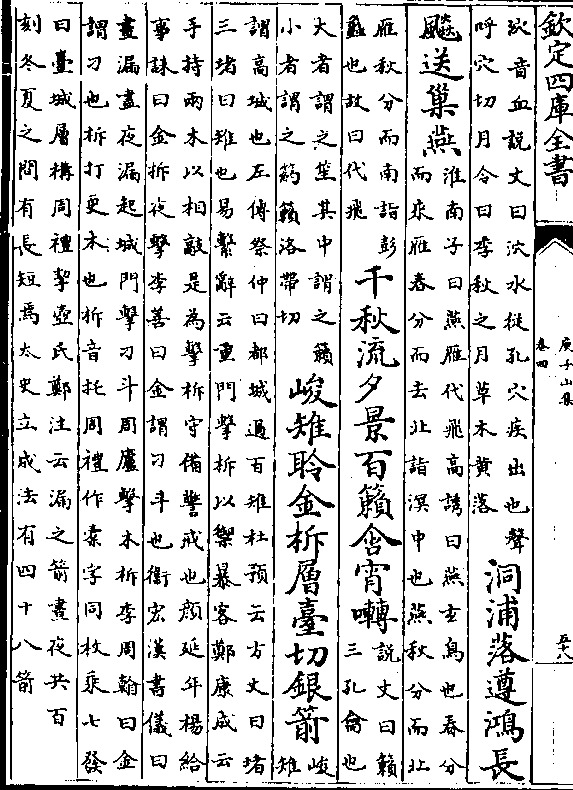 欽定四庫全書
庾子山集
卷四
五十八
泬音血説文曰泬水從孔穴疾出也聲
呼穴切月令曰季秋之月草木黄落
洞浦落遵鴻長
飈送巢燕
淮南子曰燕雁代飛高誘曰燕玄鳥也春分
而來雁春分而去北詣漠中也燕秋分而北
雁秋分而南詣彭
蠡也故曰代飛
千秋流夕景百籟含宵囀
説文曰籟
三孔龠也
大者謂之笙其中謂之籟
小者謂之箹籟洛帶切
峻雉聆金柝層臺切銀箭
峻
雉
謂高城也左傳祭仲曰都城過百雉杜預云方丈曰堵
三堵曰雉也易繫辭云重門擊柝以禦暴客鄭康成云
手持兩木以相敲是為擊柝守備警戒也顔延年楊給
事誄曰金柝夜擊李善曰金謂刁斗也衛宏漢書儀曰
晝漏盡夜漏起城門擊刁斗周廬擊木柝李周翰曰金
謂刁也柝打更木也柝音托周禮作𣝔字同枚乘七發
曰臺城層構周禮挈壺氏鄭注云漏之箭晝夜共百
刻冬夏之間有長短焉太史立成法有四十八箭